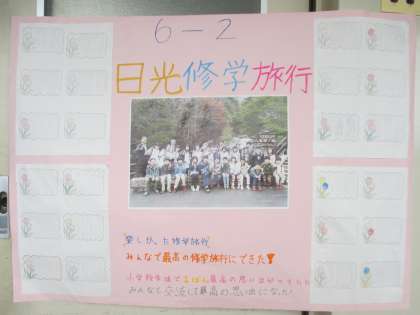 6-2
日光修学旅行
楽しかった修学旅行
みんなで最高の修学旅行にできた!
小学校生活で1ばん最高の思い出が
みんなで交流して最高の思い出になった!